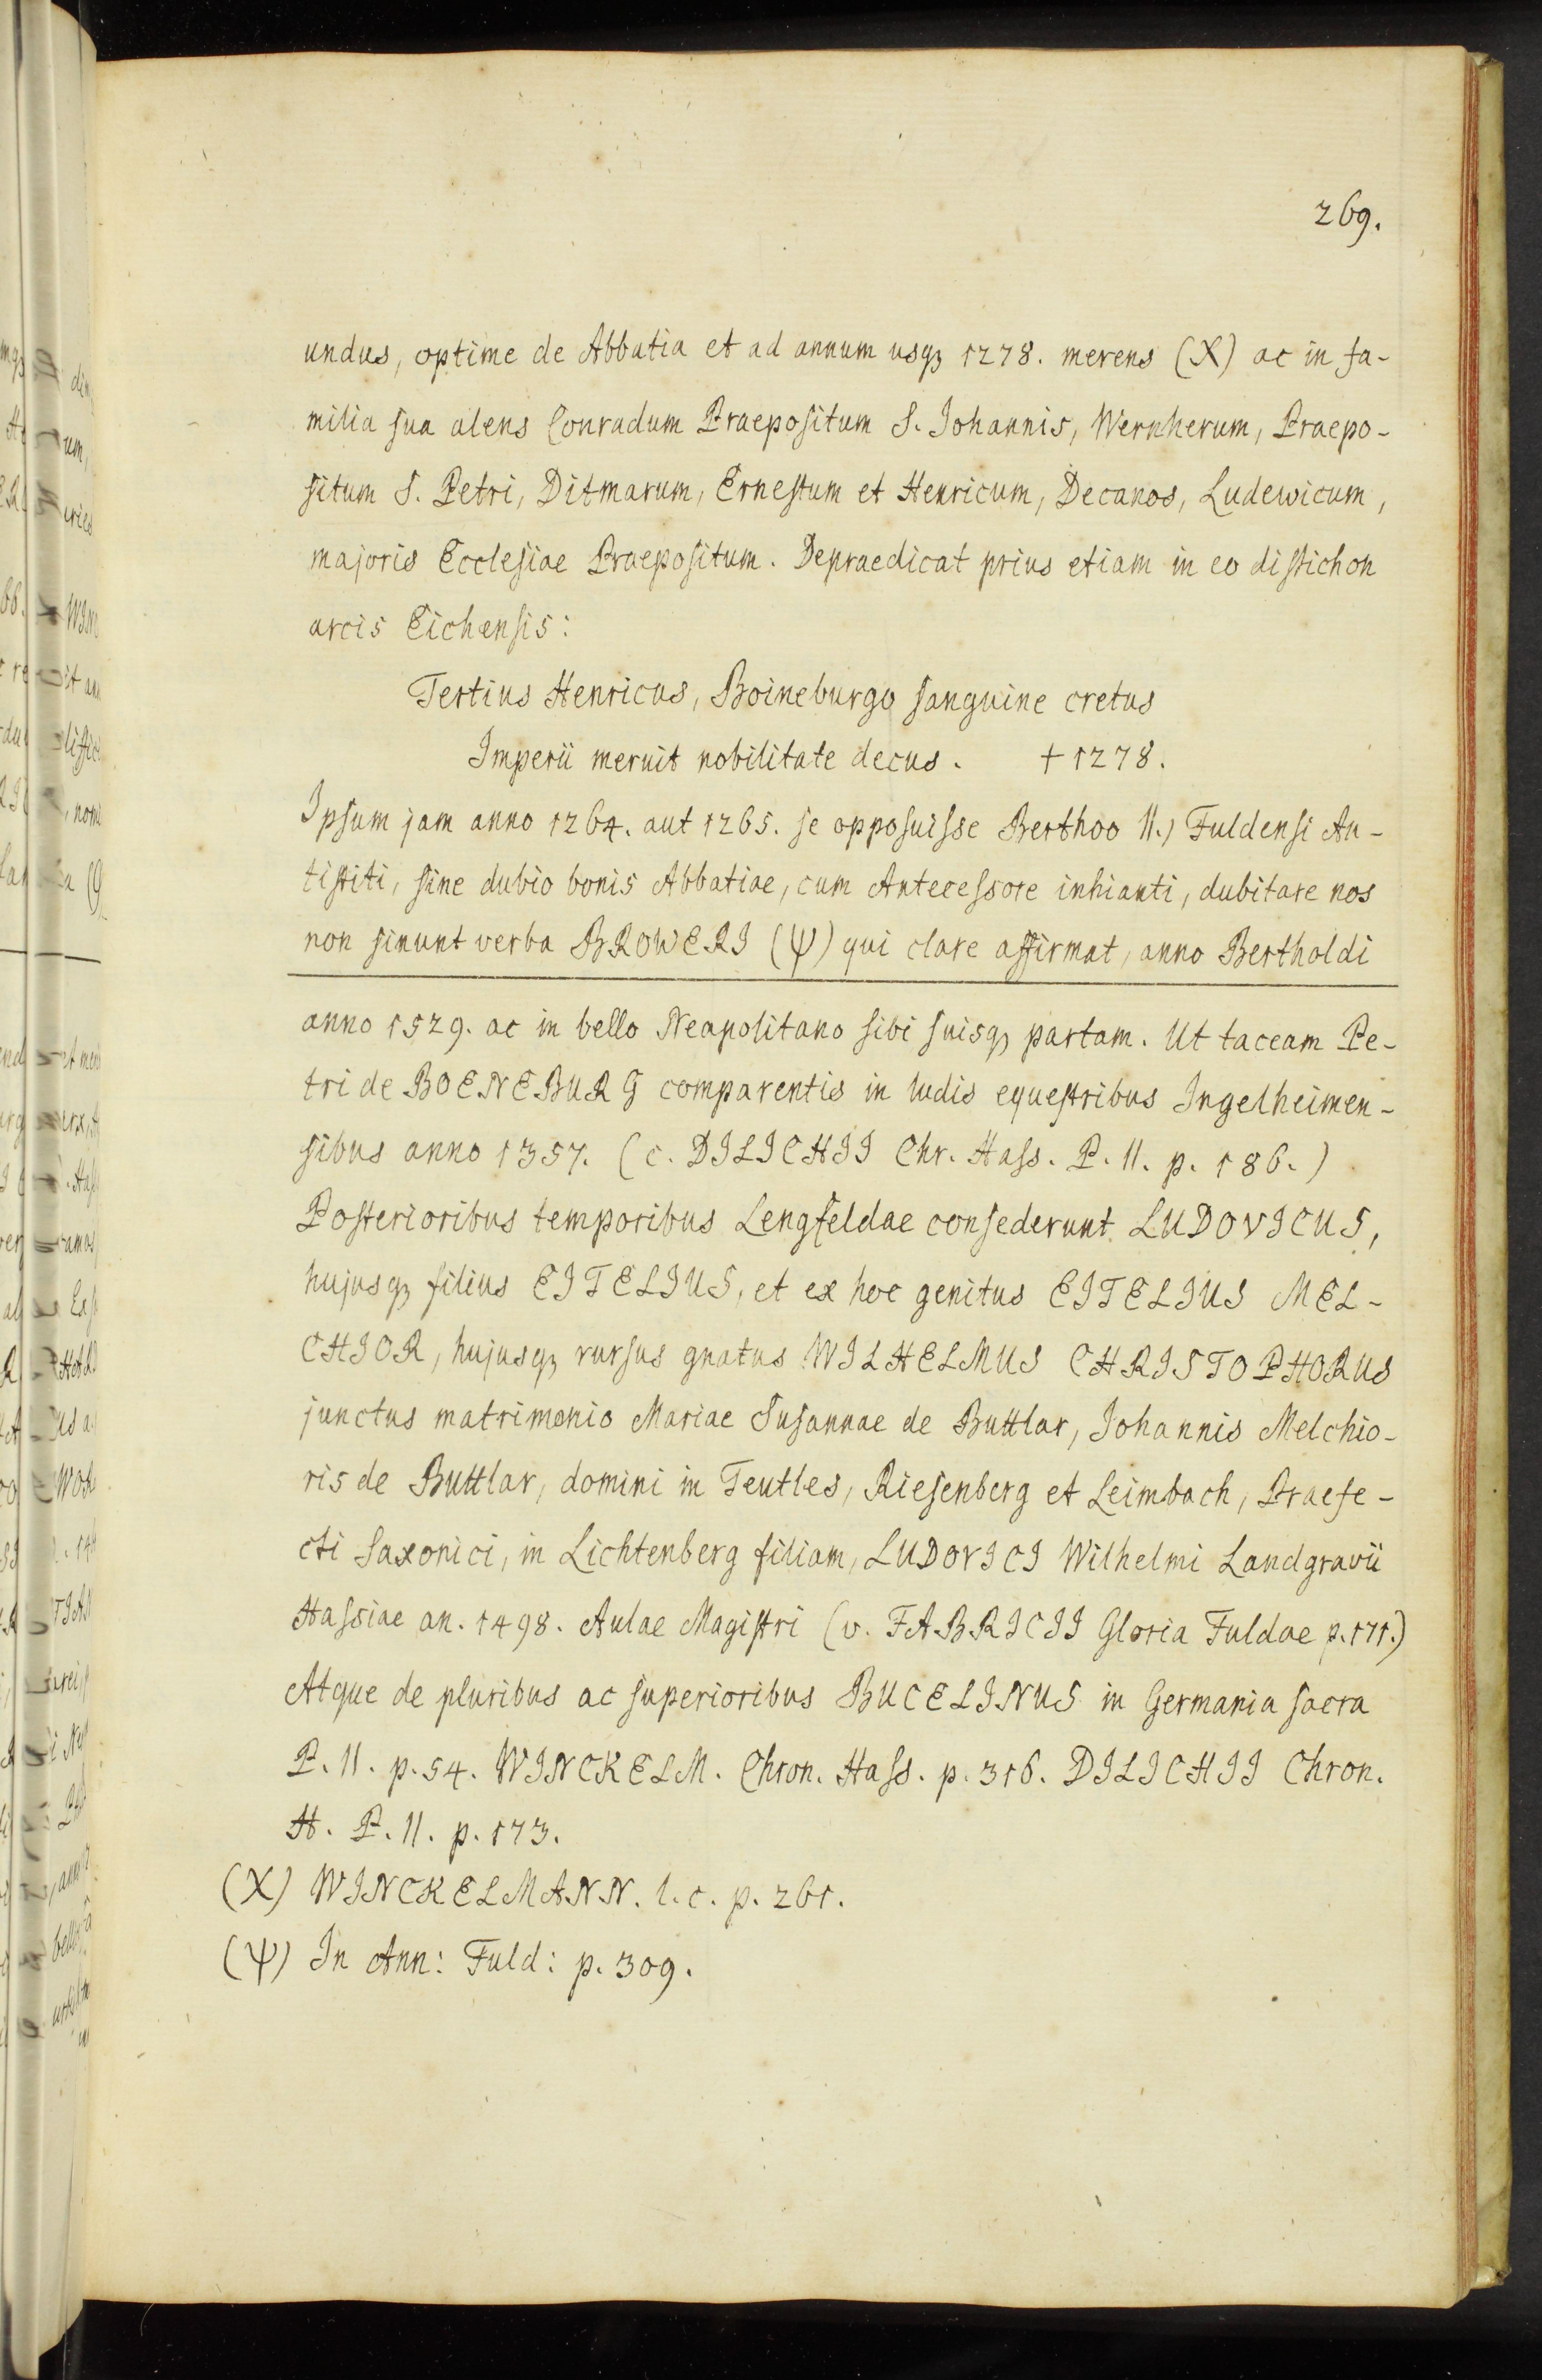 269.
undus, optime de Abbatia et ad annum usqꝫ 1278. merens (X) ac in fa-
milia sua alens Conradum Praepositum S. Johannis, Wernherum, Praepo-
situm S. Petri, Ditmarum, Ernestum et Henricum, Decanos, Ludewicum,
majoris Ecclesiae Praepositum. Depraedicat prius etiam in eo distichon
arcis Eichensis:
Tertius Henricus, Boineburgo sanguine cretus
Imperii meruit nobilitate decus. † 1278.
Ipsum jam anno 1264. aut 1265. se opposuisse Berthoo II.) Fuldensi An-
tistiti, sine dubio bonis Abbatiae, cum Antecessore inhianti, dubitare nos
non sinunt verba BROWERI (Ψ) qui clare affirmat, anno Bertholdi
anno 1529. ac in bello Neapolitano sibi suisqꝫ partam. Ut taceam Pe-
tri de BOENEBURG comparentis in ludis equestribus Ingelheimen-
sibus anno 1357. (c. DILICHII Chr. Hass. P. II. p. 186.)
Posterioribus temporibus Lengsfeldae consederunt LUDOVICUS,
hujusqꝫ filius EITELIUS, et ex hoc genitus EITELIUS MEL-
CHIOR, hujusqꝫ rursus gnatus WILHELMUS CHRISTOPHORUS
junctus matrimonio Mariae Susannae de Buttlar, Johannis Melchio-
ris de Buttlar, domini in Teutles, Riesenberg et Leimbach, Praefe-
cti Saxonici, in Lichtenberg filiam, LUDOVICI Wilhelmi Landgravii
Hassiae an. 1498. Aulae Magistri (v. FABRICII Gloria Fuldae p. 171.)
Atque de pluribus ac superioribus BUCELINUS in Germania sacra
P. II. p. 54. WINCKELM. Chron. Hass. p. 316. DILICHII Chron.
H. P. II. p. 173.
(X) WINCKELMANN. l. c. p. 261.
(Ψ) In Ann: Fuld: p. 309.